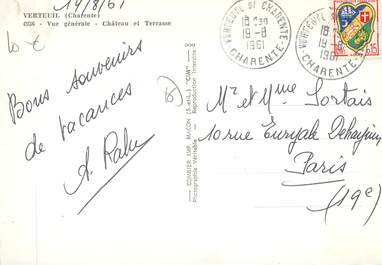 VERTEUIL (Charente)
4936 - Vue générale - Château et Terrasse
14/8/61
10 €
Bons souvenirs
de vacances
A. Rabu
COMBIER IMP. MACON (S.-et-L.) "CIM"
Photographie Véritable - Reproduction Interdite
VERTEUIL S/ CHARENTE
18 H30
19-8
1961
CHARENTE
VERTEUIL S/
18 H
19-8
1961
CHARENTE
0,15
Mr et Mme Sortais
10 rue Euryale Dehaynin
Paris
(19e)